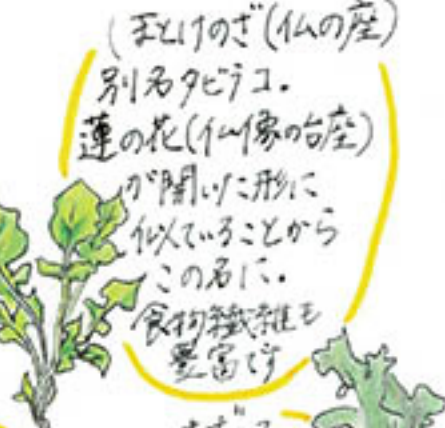 ほとけのざ(仏の座)
別名タビラコ。
蓮の花(仏像の台座)
が開いた形に
似ていることから
この名に。
食物繊維も
豊富です